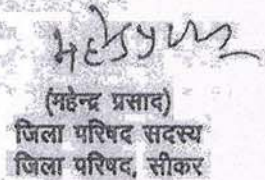 (महेन्द्र प्रसाद)
जिला परिषद सदस्य
जिला परिषद, सीकर